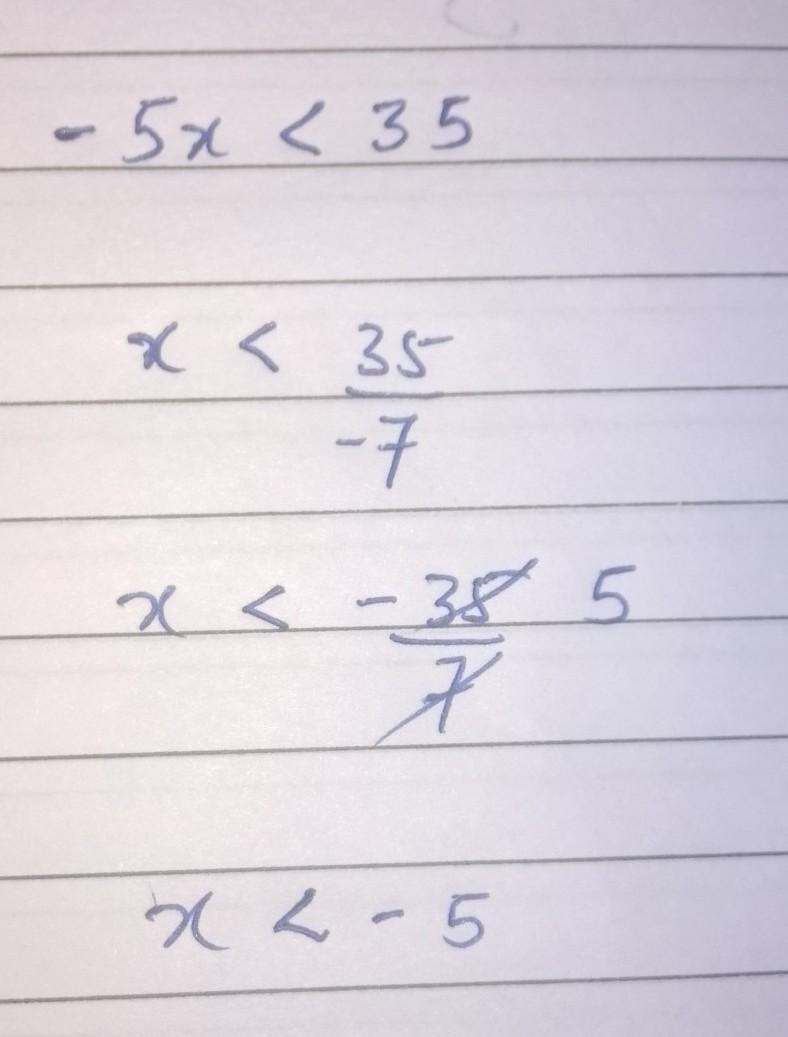 - 5x < 35
x < 35
-7
x < - 35 5
7
x < - 5